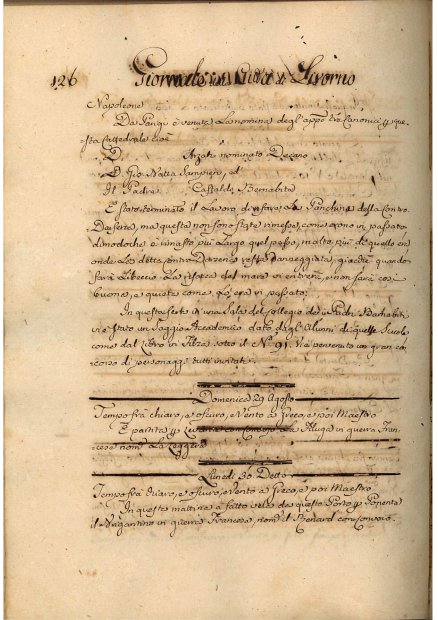 126 Giornale di Città di Livorno
Napoleone
Da Parigi è venuta la nomina degl' app. Canonici p. que-
sta Cattedrale cioè
D. Anzati nominato Decano
D. Gio. Batta Sanpieri, ed
Il Padre Castaldi Bernabita
È stato terminato il Lavoro di disfare La Panchina della Contro
Darsena, ma queste non sono state rimesse, come erono in passato
dimodochè è rimasto più Largo quel passo, molto più di quello
onde la detta contro Darsena resta daneggiata, giacchè quando
sarà Libeccio La risacca del mare vi entrerà, e non sarà così
buono, e quiete come Lo era in passato.
In questa sera in una Sala del Collegio de Padri Barnabiti
vi è stato un Saggio Accademico dato dagl' Alunni di quelle Scuole
come dal Libro in Filza sotto il N.° 91. Vi è pervenuto un gran con
corso di personaggi tutti invitati.
Domenica 29 Agosto
Tempo frà chiaro, e oscuro, e Vento a Greco, e poi Maestro
È partita p. Levante con convojo La Fluga in guerra Fran-
cese nom. La Leggera
Lunedi 30 Detto
Tempo frà chiaro, e oscuro, e Vento a Greco, e poi Maestro
In questa mattina à fatto vela da questo Porto p. Ponente
il Brigantino in guerra Francese, nom. il Renard con convoio.